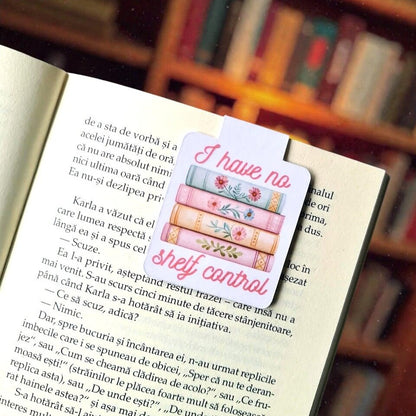 I have no
shelf control
de a sta de vorbă și a
acelei jumătăți de or
că nu are absolut nim
nici ultima oară când
Ea nu-și dezlipea privi
Karla a văzut că el
care lumea respectă s
lângă ea și a spus cev
— Scuze.
Ea l-a privit, așteptând restul frazei – care însă nu a
mai venit. S-au scurs cinci minute de tăcere stânjenitoare,
până când Karla s-a hotărât să ia inițiativa.
— Ce să scuz, adică?
— Nimic.
Dar, spre bucuria și încântarea ei, n-au urmat replicile
imbecile care i se spuneau de obicei, „Sper că nu te deran-
jez”, sau „Cum se cheamă clădirea de acolo?”, sau „Ce fru-
moasă ești!” (străinilor le plăcea foarte mult să folosească
rat hainele astea?” sau „De unde ești?”
S-a hotărât să-l aj